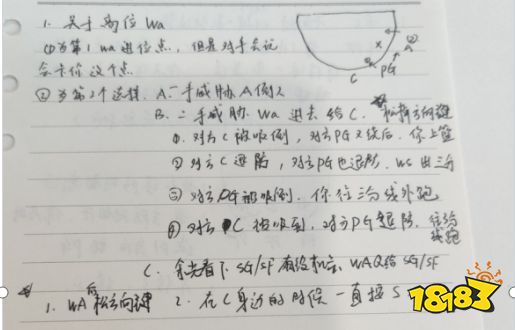 1. 关于高位Wa
①为第1 wa 进位点，但是对手会说
会卡你这个点
②
A
PG
C
②为第2个选择. A. 一手威胁 A倒人
B. 二手威胁. Wa 进去给C. 松掉方向键
①. 对方C被吸倒，对方PG又绕后. 你上篮
②对方C退防，对方PG也退防. WS 出三分
③对方PG被吸倒. 你往三分线外跑
④对方C被吸到，对方PG退防. 往三分线跑
C. 余光看下SG/SF有没机会. WAQ给SG/SF
1. WA后松方向键 2. 在C身边的时候一直按S
18183